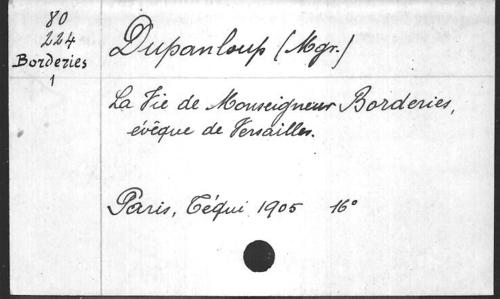 80
224
Borderies
1
Dupanloup (Mgr.)
La Vie de Monseigneur Borderies,
évêque de Versailles.
Paris, Téqui 1905 16°